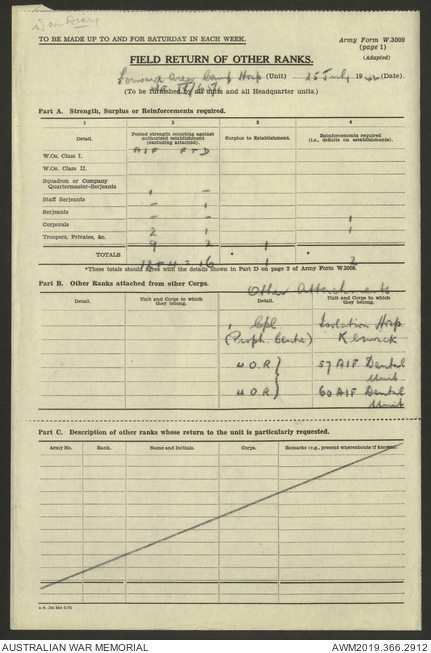 War Diary
TO BE MADE UP TO AND FOR SATURDAY IN EACH WEEK.
Army Form W.3009
(page 1)
(Adapted)
FIELD RETURN OF OTHER RANKS.
Forward Area Camp Hosp (Unit) 25 July 1942 (Date).
(To be furnished by all units and all Headquarter units.)
Part A. Strength, Surplus or Reinforcements required.
1 2 3 4
Detail. Posted strength counting against authorised establishment (excluding attached). Surplus to Establishment. Reinforcements required (i.e., deficits on establishments).
AIF
W.Os. Class I.
W.Os. Class II.
Squadron or Company Quartermaster-Serjeants 1 –
Staff Serjeants – 1
Serjeants – 1
Corporals 2 1 1
Troopers, Privates, &c. 9 2 1
TOTALS 12 + 4 = 16 1 2
*These totals should agree with the details shown in Part D on page 2 of Army Form W.3009.
Part B. Other Ranks attached from other Corps.
Other Attachments
Detail. Unit and Corps to which they belong. Detail. Unit and Corps to which they belong.
1 Cpl Isolation Hosp
(Proph. Centre) Keswick
4 O.R } 57 AIF Dental
Unit
4 O.R } 60 AIF Dental
Unit
Part C. Description of other ranks whose return to the unit is particularly requested.
Army No. Rank. Name and Initials. Corps. Remarks (e.g., present whereabouts if known).
AUSTRALIAN WAR MEMORIAL
AWM2019.366.2912